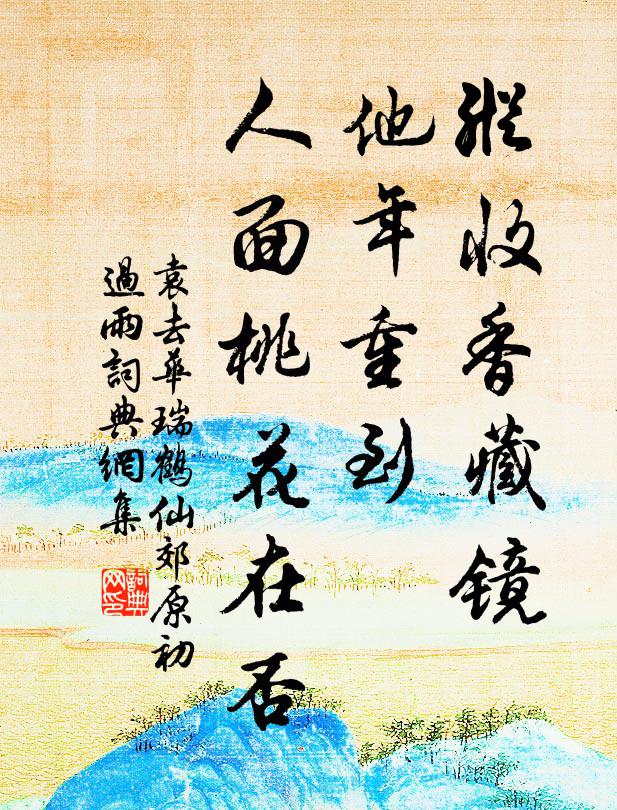 縱收香藏镜
他年重到
人面桃花在否
袁去華瑞鶴仙郊原初
過雨詞典網集
詞典
网印